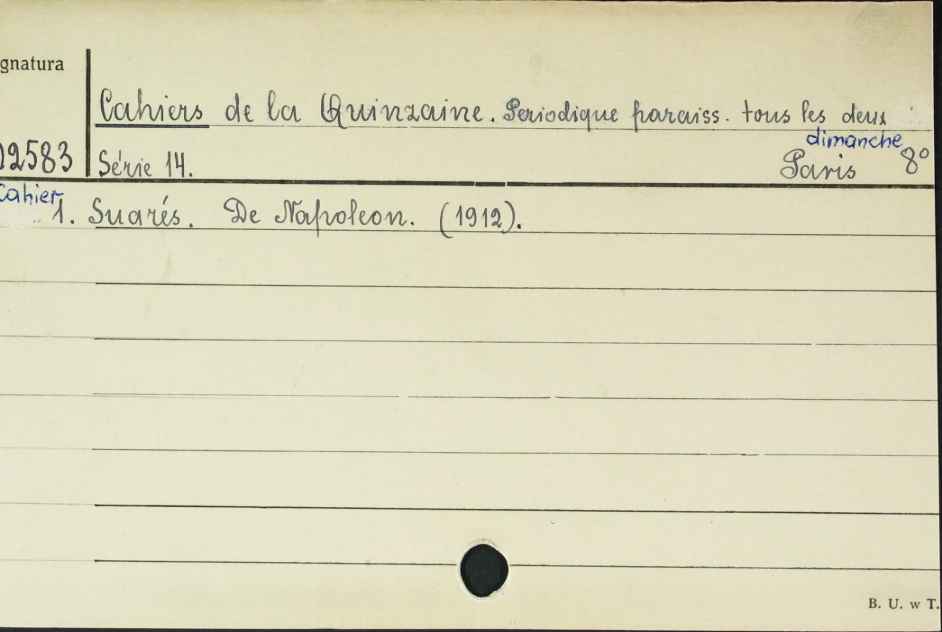 gnatura
Cahiers de la Quinzaine. Periodique paraiss. tous les deux
dimanche
02583 Série 14. Paris 8°
Cahier
1. Suarés. De Napoleon. (1912).
B. U. w T.